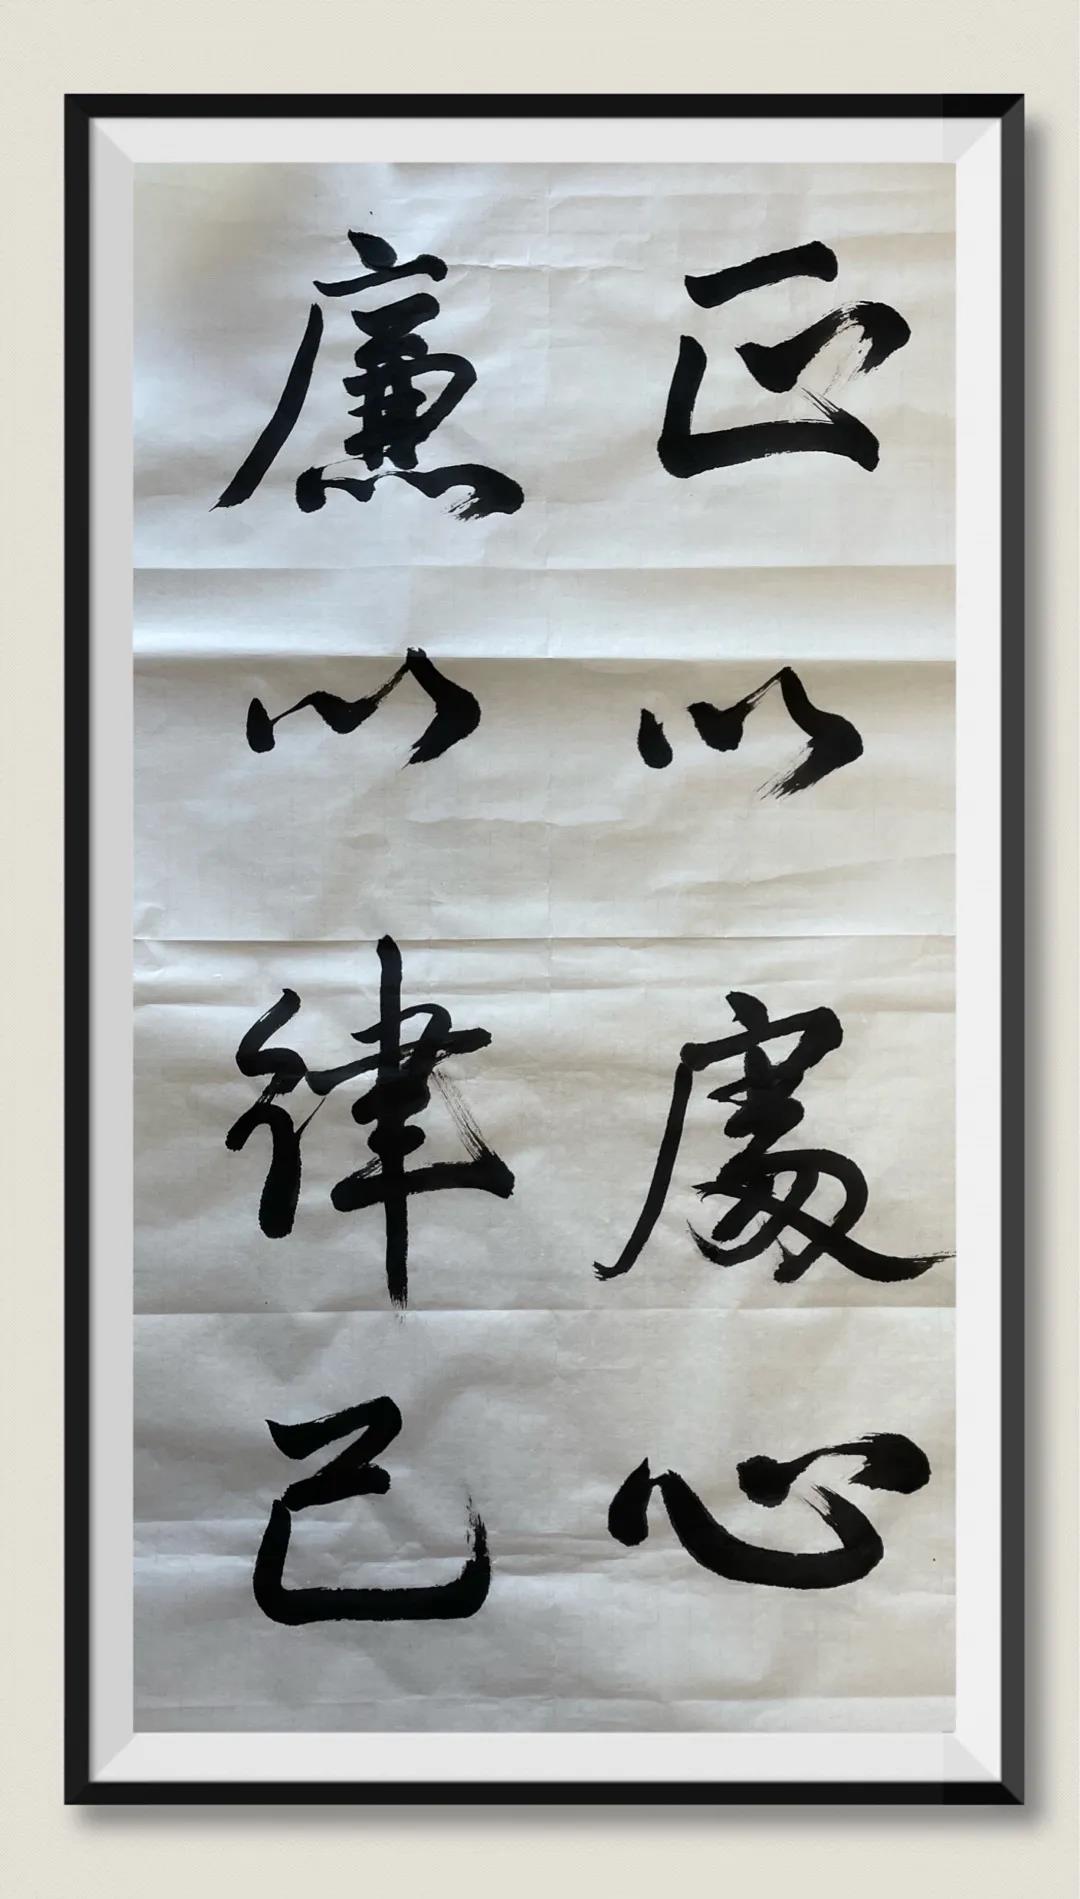 正以處心
廉以律己